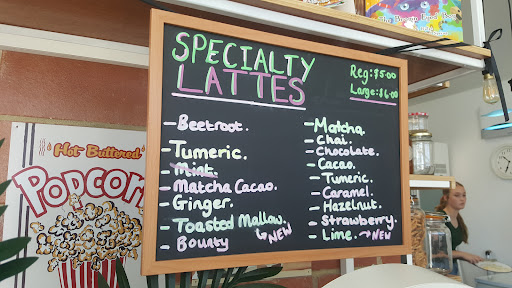 SPECIALTY
LATTES
Reg: $5.00
Large: $6.00
- Beetroot.
- Tumeric.
- Mint.
- Matcha Cacao.
- Ginger.
- Toasted Mallow.
- Bounty
NEW
- Matcha.
- Chai.
- Chocolate.
- Cacao.
- Tumeric.
- Caramel.
- Hazelnut.
- Strawberry.
- Lime.
NEW
Hot Buttered
POPCOR